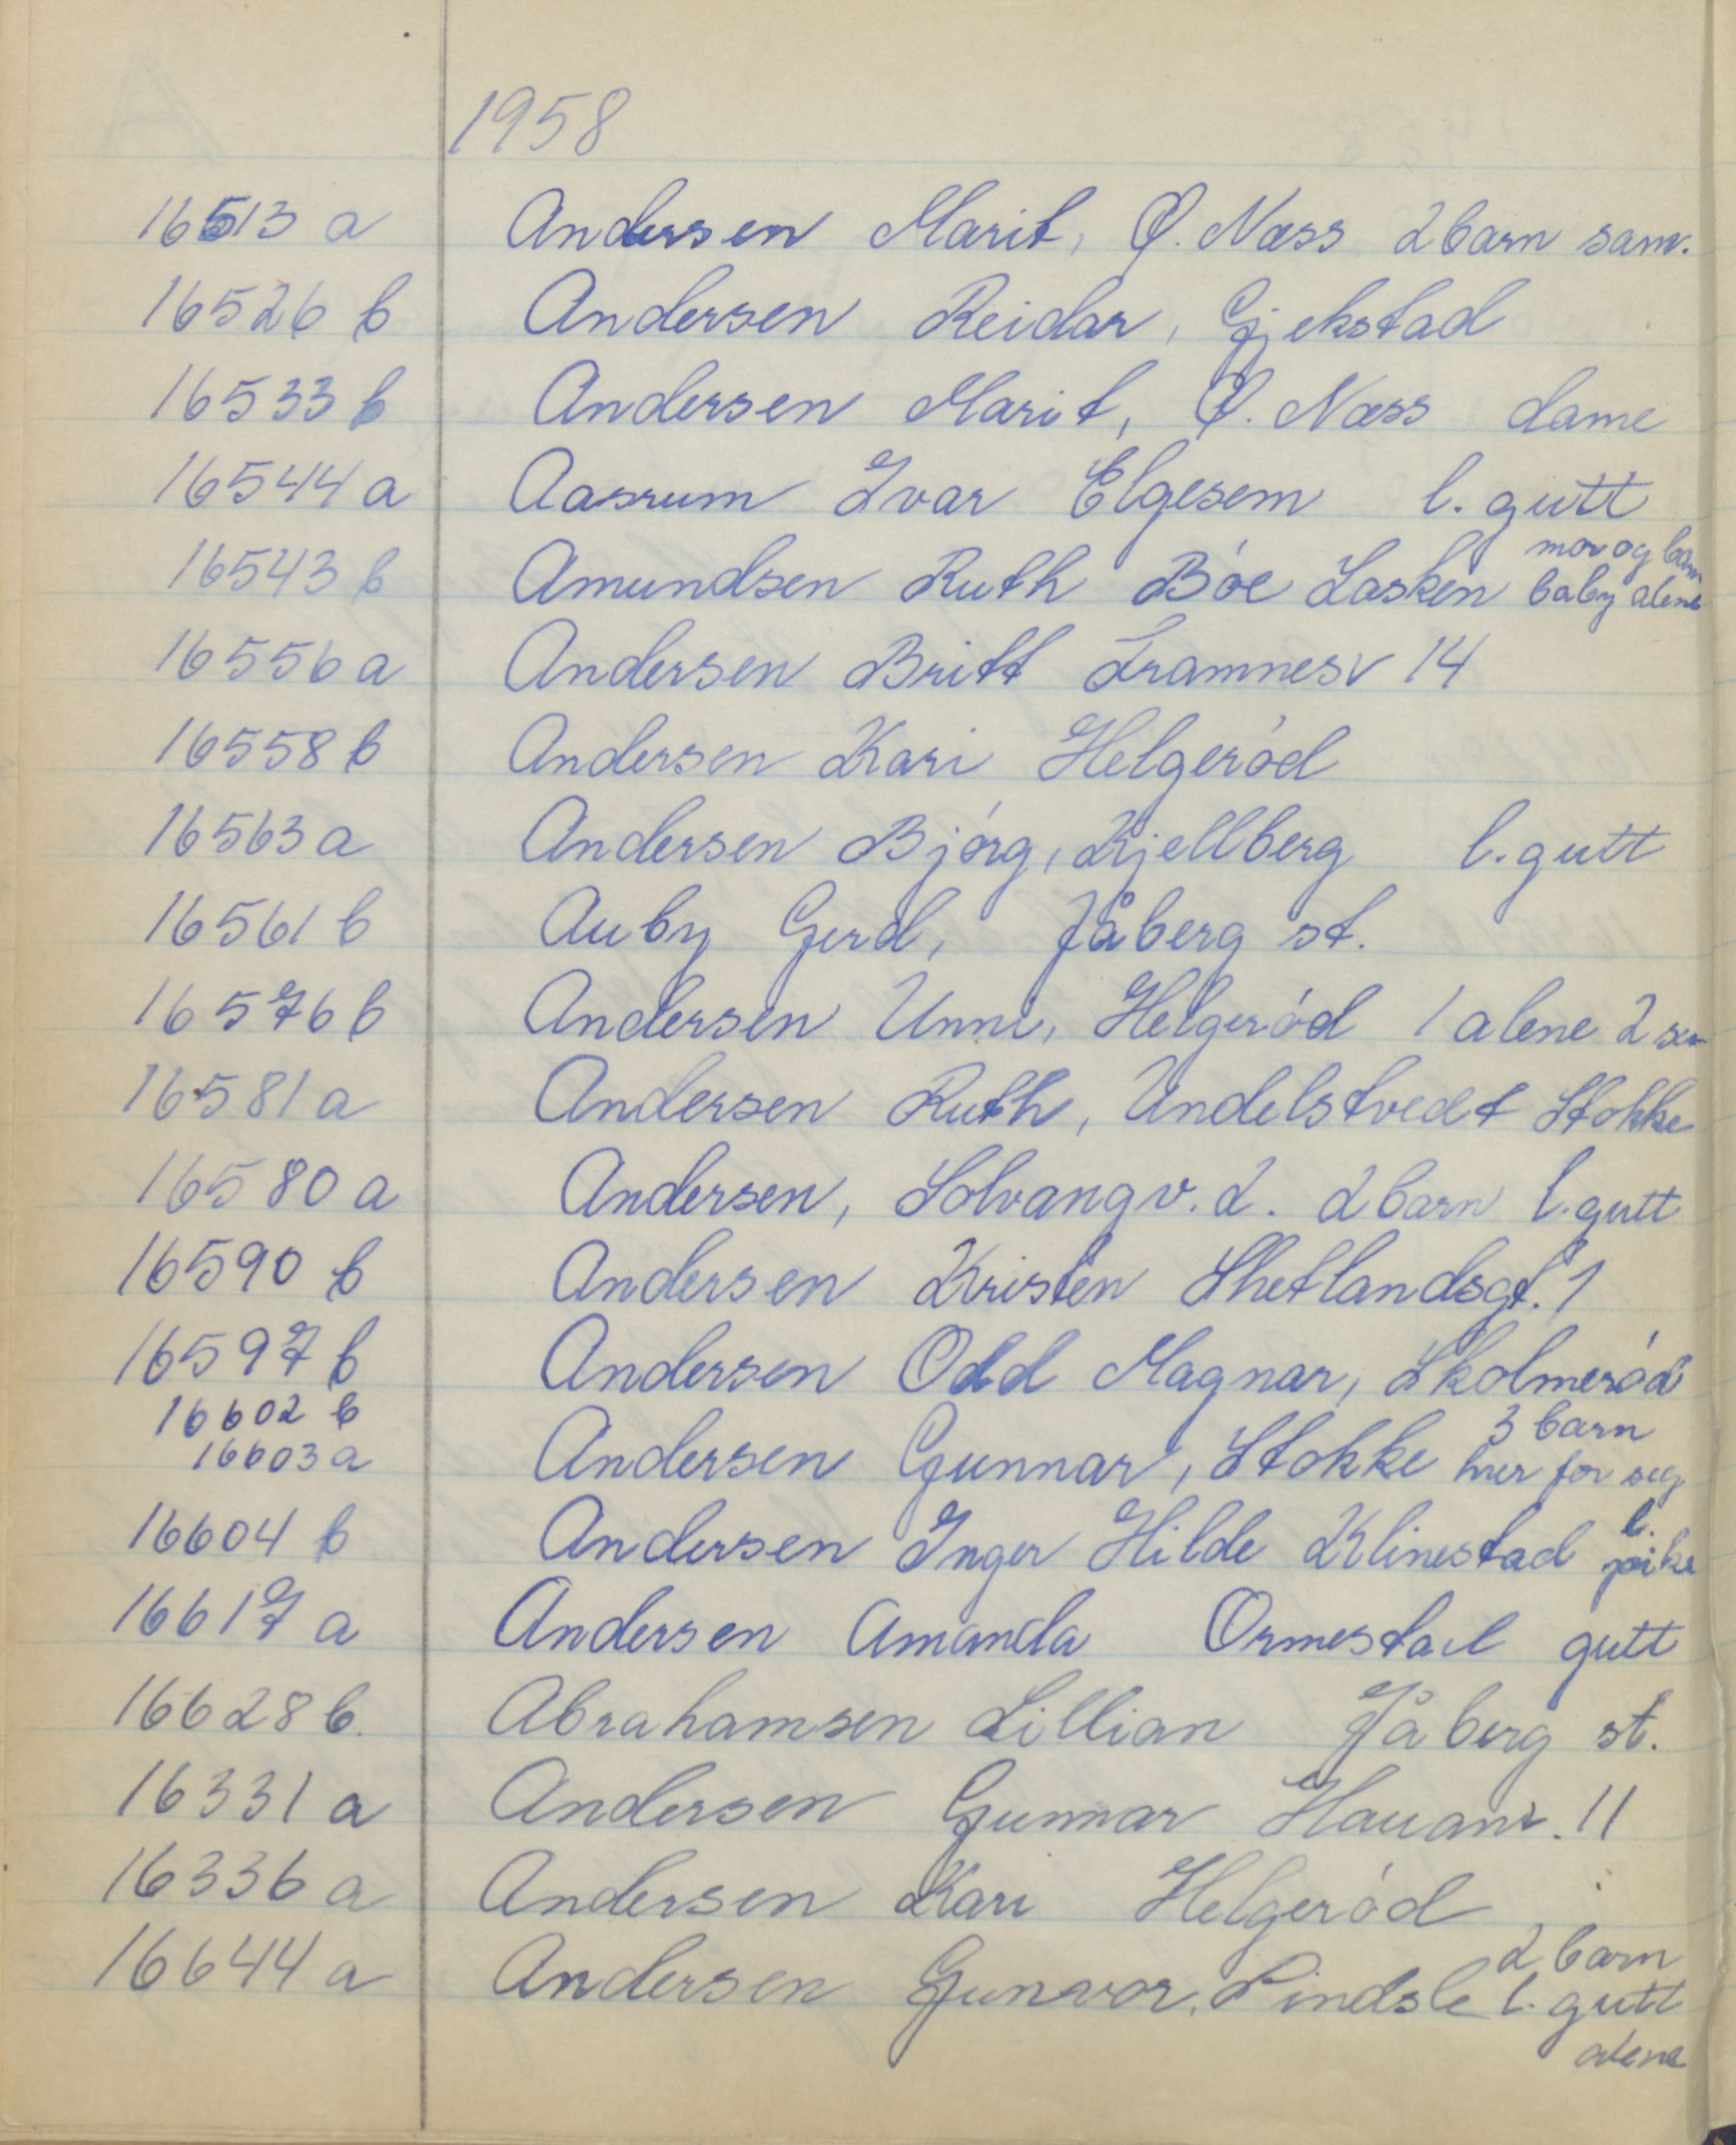 1958
16513 a Andersen Marit, Ø. Næss 2 barn sam.
16526 b Andersen Reidar, Gjekstad
16533 b Andersen Marit, Ø. Næss dame
16544 a Aasrum Ivar Elgesem l. gutt
16543 b Amundsen Ruth Bóe Lasken mor og barn baby alene
16556 a Andersen Britt Framnesv 14
16558 b Andersen Kari Helgeród
16563 a Andersen Bjórg, Kjellberg l. gutt
16561 b Auby Gerd, Jåberg st.
16576 b Andersen Unni, Helgeród 1 alene 2 sam
16581 a Andersen Ruth, Undelstvedt Stokke
16580 a Andersen, Solvangv. 2. 2 barn l. gutt
16590 b Andersen Kristen Shetlandsgt. 1
16597 b Andersen Odd Magnar, Skolmeród
16602 b
16603 a Andersen Gunnar, Stokke 3 barn hver for seg
16604 b Andersen Inger Hilde Klinestad l. pike
16617 a Andersen Amanda Ormestad gutt
16628 b. Abrahamsen Lillian Jåberg st.
16331 a Andersen Gunnar Hauanv. 11
16336 a Andersen Kari Helgeród
16644 a Andersen Gunvor, Lindsle 2 barn l. gutt
alene